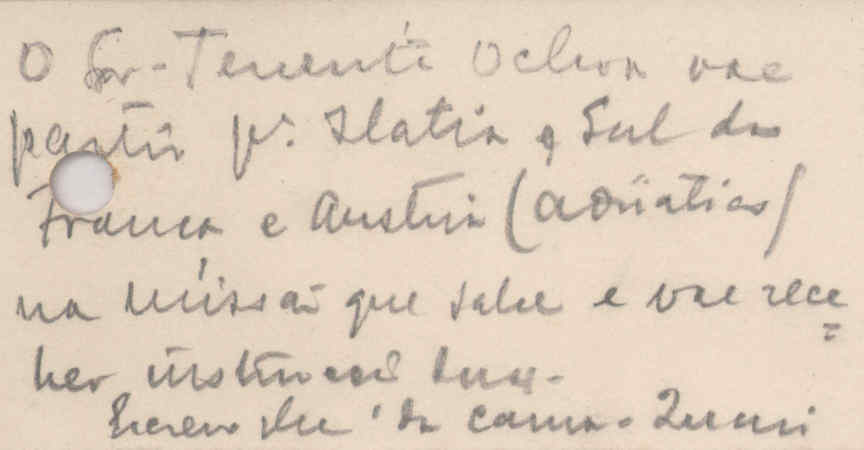 O Sor-Tenente Ochoa vae
partir pa. Italia e Sul da
França e Austria (adriatico)
na missão que sabe e vae rece
ber instrucões
Escrevo lhe da cama -